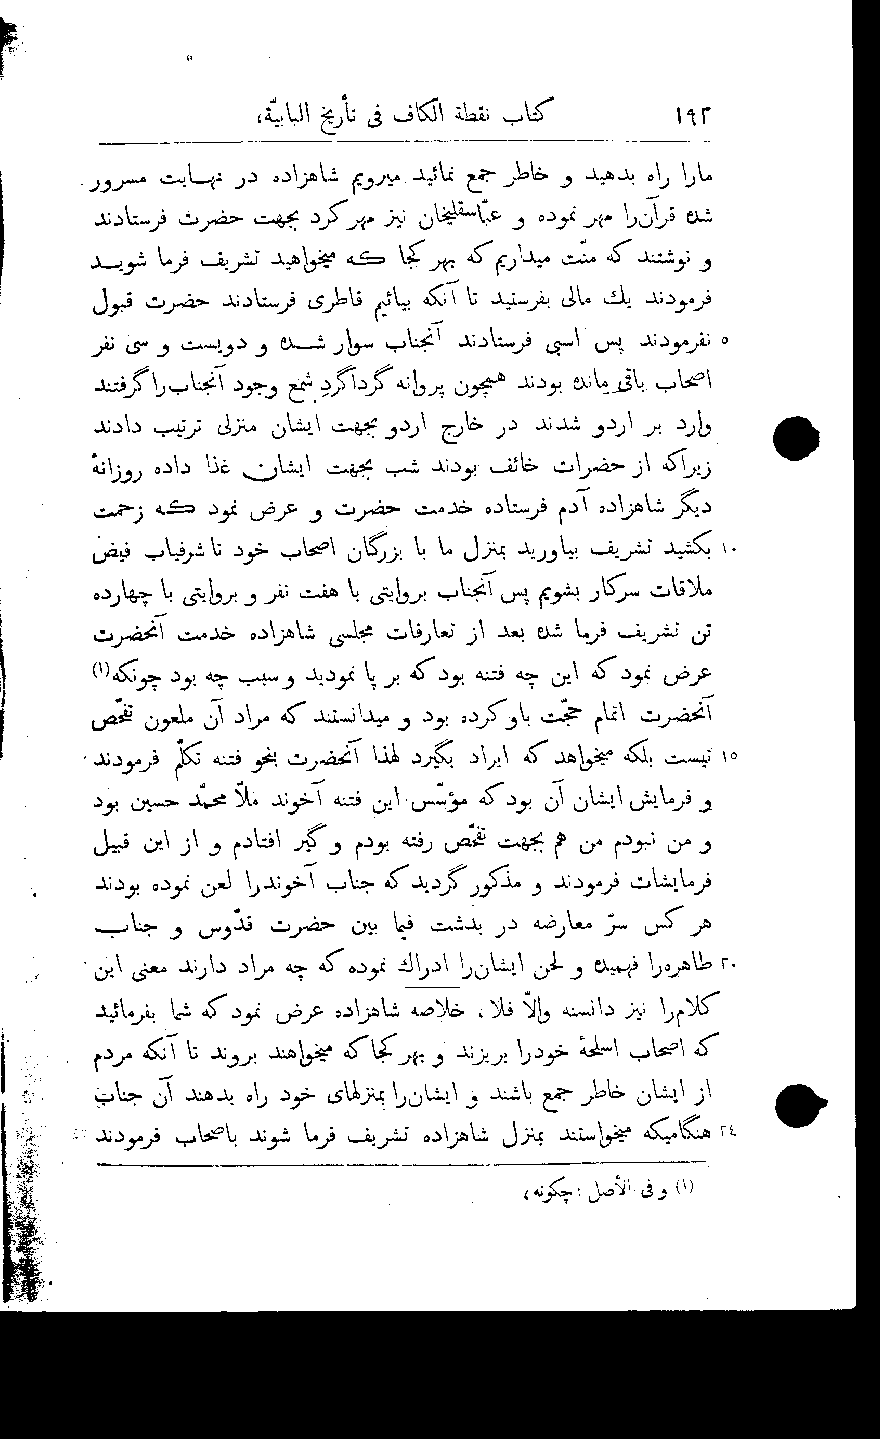 ١٩٢ كتاب نقطة الكاف فی تأريخ البابيّة،
مارا راه بدهيد و خاطر جمع نمائيد ميرويم شاهزاده در نهايت مسرور
شده قرآن‌را مهر نموده و عبّاسقليخان نيز مهر کرد بجهت حضرت فرستادند
و نوشتند که منّت ميداريم که بهر کجا که ميخواهيد تشريف فرما شويد
فرمودند يك مالی بفرستيد تا آنکه بيائيم قاطری فرستادند حضرت قبول
٥ نفرمودند پس اسبی فرستادند آنجناب سوار شده و دويست و سی نفر
اصحاب باقی مانده بودند همچون پروانه گرداگردِ شمع وجود آنجناب‌را گرفتند
وارد بر اردو شدند در خارج اردو بجهت ايشان منزلی ترتيب دادند
زيراکه از حضرات خائف بودند شب بجهت ايشان غذا داده روزانهٔ
ديگر شاهزاده آدم فرستاده خدمت حضرت و عرض نمود که زحمت
١٠ بکشيد تشريف بياوريد بمنزل ما با بزرگان اصحاب خود تا شرفياب فيض
ملاقات سرکار بشويم پس آنجناب بروايتی با هفت نفر و بروايتی با چهارده
تن تشريف فرما شده بعد از تعارفات مجلسی شاهزاده خدمت آنحضرت
عرض نمود که اين چه فتنه بود که بر پا نموديد و سبب چه بود چونکه(١)
آنحضرت اتمام حجّت باو کرده بود و ميدانستند که مراد آن ملعون تفحّص
١٥ نيست بلکه ميخواهد که ايراد بگيرد لهذا آنحضرت بنحو فتنه تکلّم فرمودند
و فرمايش ايشان آن بود که مؤسّس اين فتنه آخوند ملّا محمّد حسين بود
و من نبودم من هم بجهت تفحّص رفته بودم و گير افتادم و از اين قبيل
فرمايشات فرمودند و مذکور گرديد که جناب آخوندرا لعن نموده بودند
هر کس سرّ معارضه در بدشت فيما بين حضرت قدّوس و جناب
٢٠ طاهره‌را فهميده و لحن ايشان‌را ادراك نموده که چه مراد دارند معنی اين
کلام‌را نيز دانسته و الّا فلا، خلاصه شاهزاده عرض نمود که شما بفرمائيد
که اصحاب اسلحهٔ خودرا بريزند و بهر کجا که ميخواهند بروند تا آنکه مردم
از ايشان خاطر جمع باشند و ايشان‌را بمنزلهای خود راه بدهند آن جناب
٢٤ هنگاميکه ميخواستند بمنزل شاهزاده تشريف فرما شوند باصحاب فرمودند
(١) و فی الأصل: چکونه،